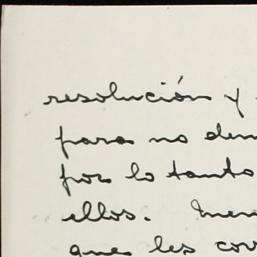 resolución y
para no
por lo tanto
ellos.
que les